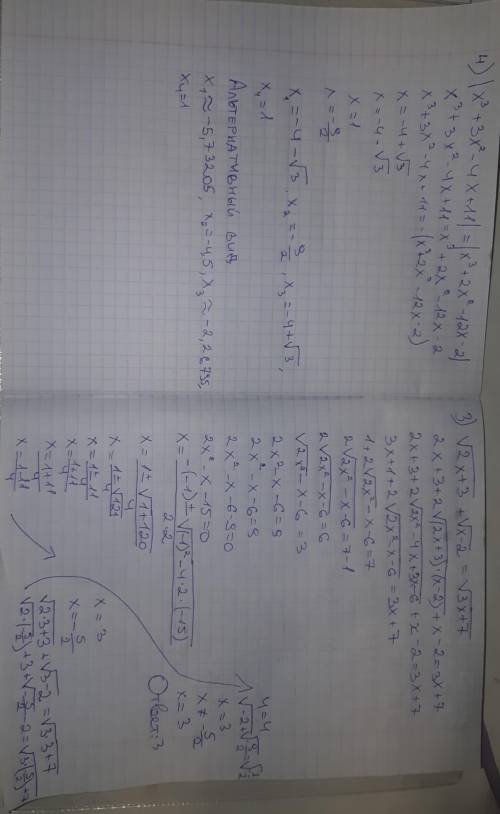 4) |x³+3x²-4x+11|=|x³+2x²-12x-2|
x³+3x²-4x+11=x³+2x²-12x-2
x³+3x²-4x+11=-(x³+2x²-12x-2)
x=-4+√3
x=-4-√3
x=1
x=-9/2
x₁=-4-√3, x₂=-9/2, x₃=-4+√3,
x₄=1
Альтернативный вид
x₁≈-5,73205, x₂=-4,5, x₃≈-2,26795,
x₄=1
3) √2x+3+√x-2=√3x+7
2x+3+2√(2x+3)·(x-2)+x-2=3x+7
2x+3+2√2x²-4x+3x-6+x-2=3x+7
3x+1+2√2x²-x-6=3x+7
1+2√2x²-x-6=7
2√2x²-x-6=7-1
2√2x²-x-6=6
√2x²-x-6=3
2x²-x-6=9
2x²-x-6=9
2x²-x-6-9=0
2x²-x-15=0
x=-(-1)±√(-1)²-4·2·(-15)/2·2
x=1±√1+120/4
x=1±√121/4
x=1±11/4
x=1+11/4
x=1+11/4
x=1-11/4
x=3
x=-5/2
√2·3+3+√3-2=√3·3+7
4=4
x=3
x≠-5/2
x=3
Ответ:3